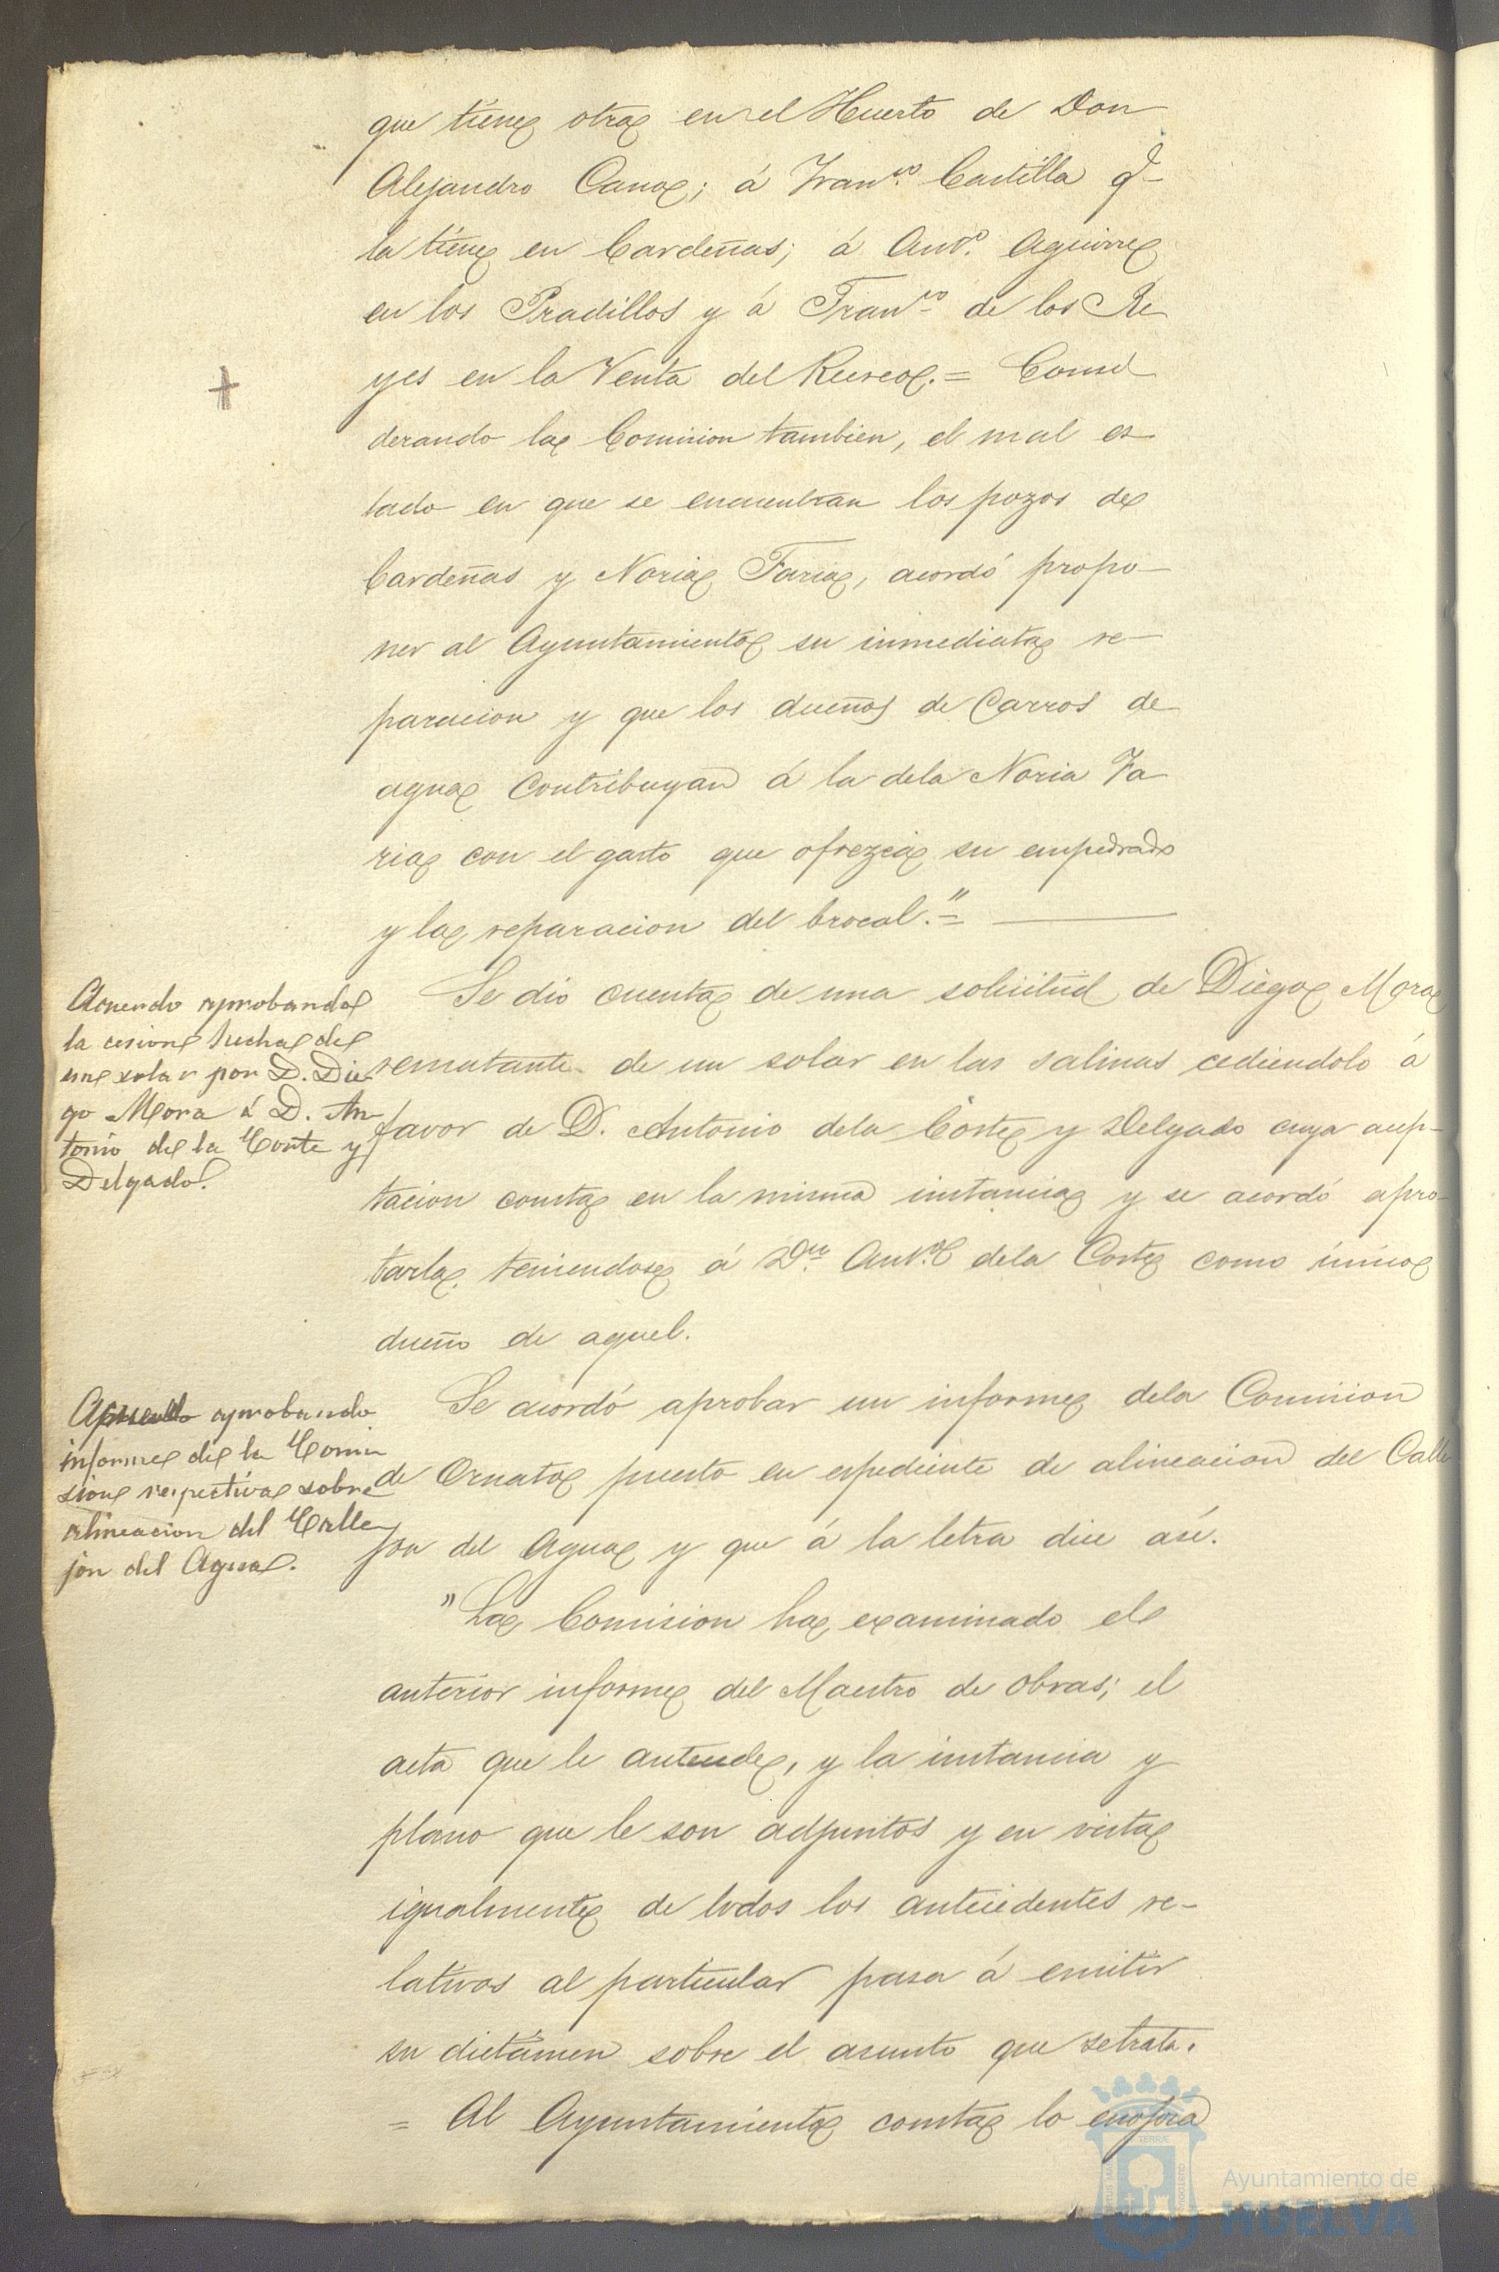 que tiene otra en el Huerto de Don
Alejandro Cano; á Fran.co Castilla q.e
la tiene en Cardeñas; á Ant.o Aguirre
en los Pradillos y á Fran.co de los Re
yes en la Venta del Recreo. = Consi
derando la Comision tambien, el mal es
tado en que se encuentran los pozos de
Cardeñas y Noria Faria, acordó propo-
ner al Ayuntamiento su inmediata re-
paracion y que los dueños de Carros de
agua contribuyan á la dela Noria Fa
ria con el gasto que ofrezca su empedrado
y la reparacion del brocal." =
Acuerdo aprobando
la cesion hecha de
un solar por D. Die
go Mora á D. An
tonio de la Corte y
Delgado.
Se dio cuenta de una solicitud de Diego Mora
rematante de un solar en las salinas cediendolo á
favor de D. Antonio dela Corte y Delgado cuya acep-
tacion consta en la misma instancia y se acordó apro-
tarla teniendose á Dn. Ant.o dela Corte como único
dueño de aquel.
Acuerdo aprobando
informe de la Comi
sion respectiva sobre
alineacion del Calle
jon del Agua.
Se acordó aprobar un informe dela Comision
de Ornato puesto en espediente de alineacion del Calle
jon del Agua y que á la letra dice así.
"La Comision ha examinado el
anterior informe del Maestro de Obras; el
acta que le antecede, y la instancia y
plano que le son adjuntos y en vista
igualmente de todos los antecedentes re-
lativos al particular pasa á emitir
su dictámen sobre el asunto que se trata.
= Al Ayuntamiento consta lo
Ayuntamiento de
HUELVA